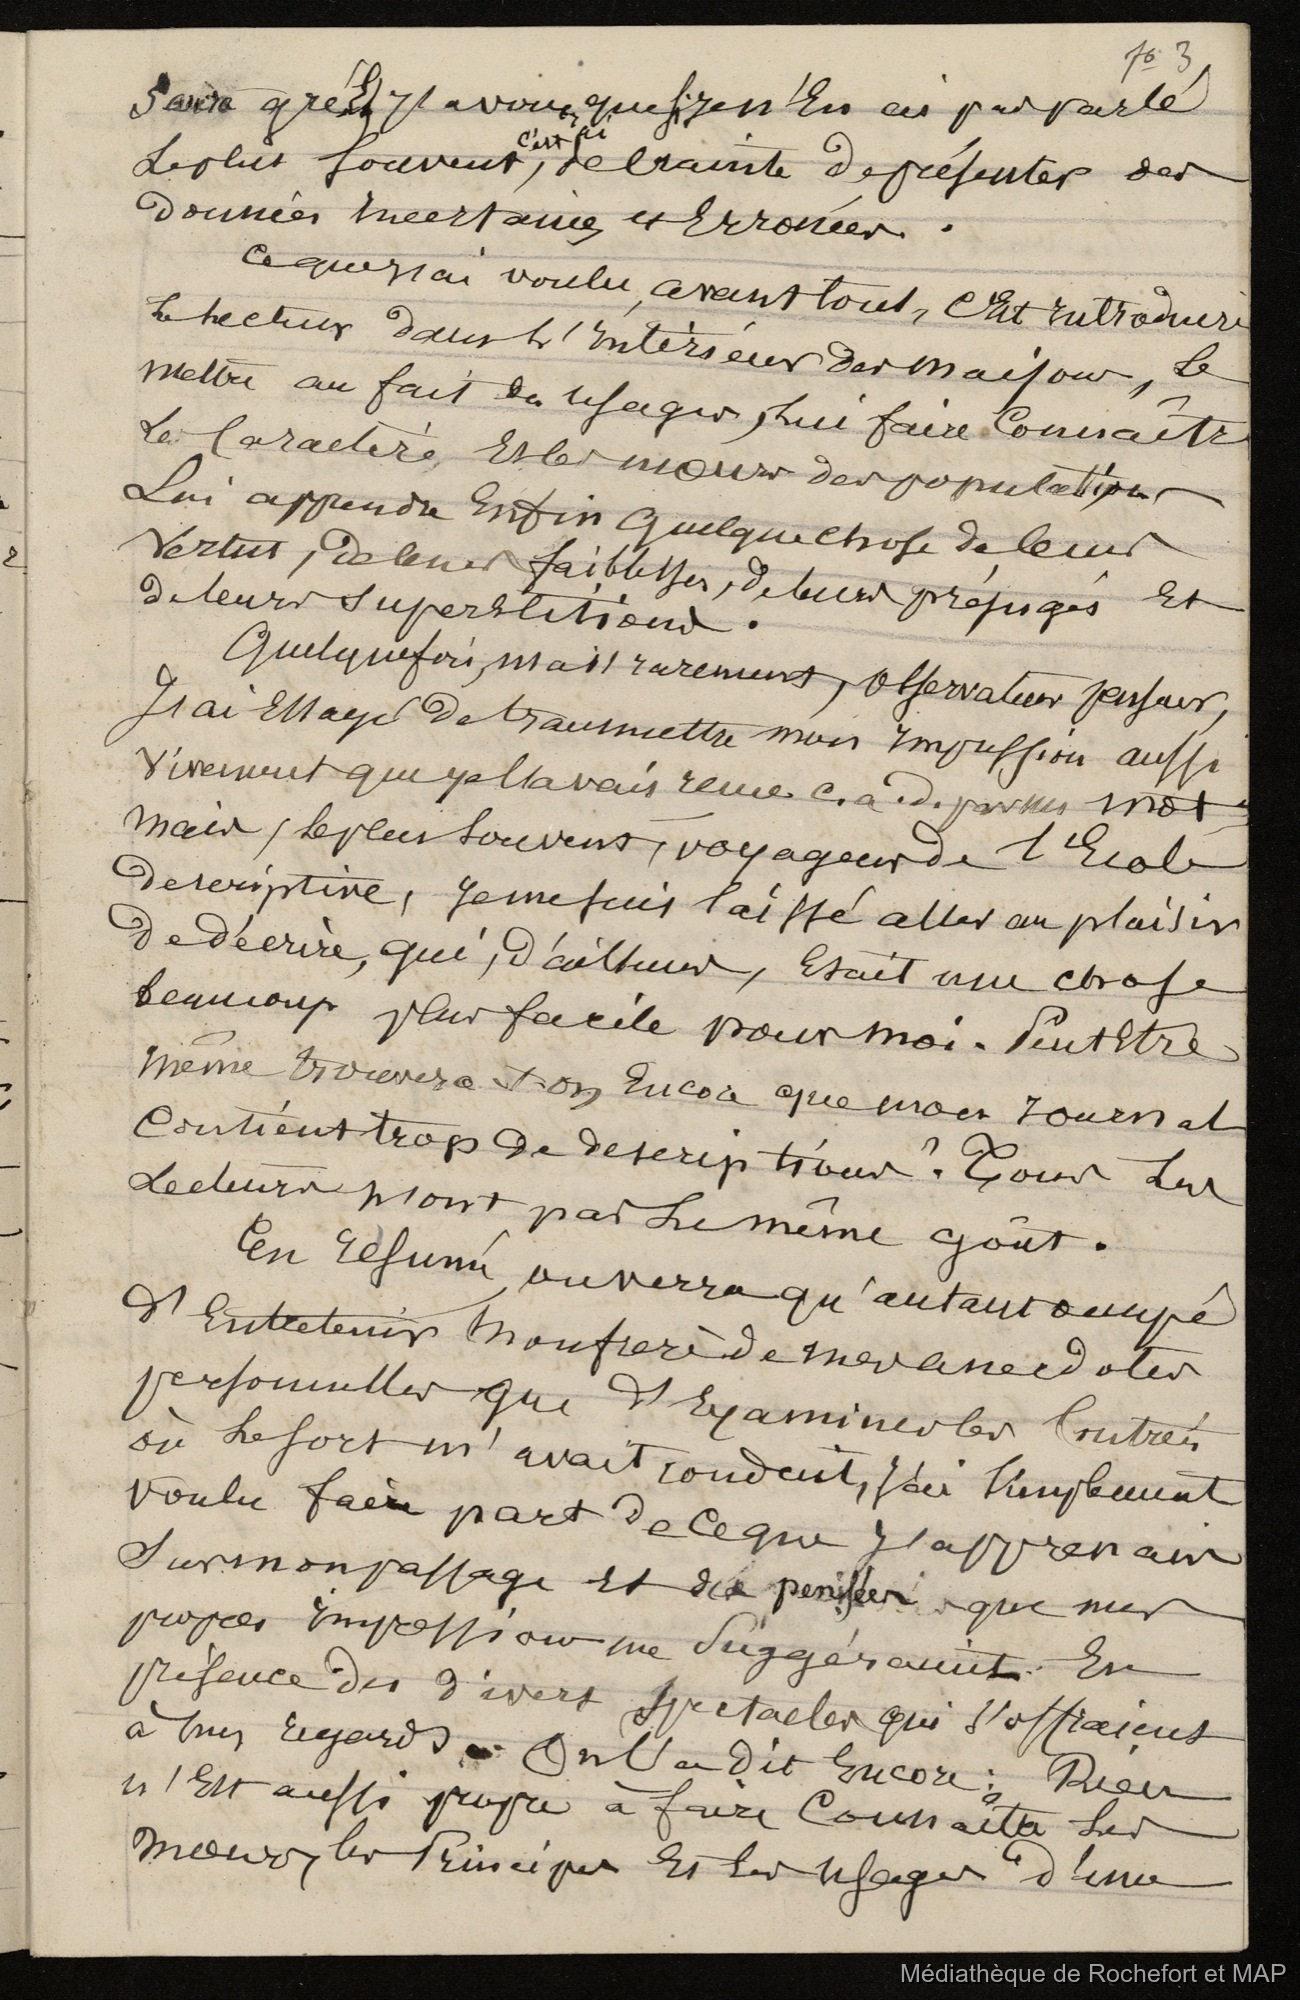 fo 3
saura gré Et j'avoue que si je n'En ai pas parlé
Le plus souvent, c'est de crainte de présenter des
données incertaines et Erronées.
Ce que j'ai voulu, avant tout, c'Est introduire
Le Lecteur dans L'intérieur des maisons, Le
mettre au fait des usages, Lui faire Connaître
Le Caractère, Et les mœurs des populations
Lui apprendre Enfin Quelque chose de leurs
Vertus, de leurs faiblesses, de leurs préjugés Et
de leurs superstitions.
Quelquefois, mais rarement, observateur penseur,
J'ai Essayé de transmettre mon impression aussi
Vivement que je l'avais reçue c. à. d. par mes mots
mais, le plus souvent, voyageur de l'Ecole
descriptive, je me suis laissé aller au plaisir
De décrire, qui, d'ailleurs, Etait une chose
beaucoup plus facile pour moi. Peut Etre
même trouvera t-on Encore que mon journal
contient trop de descriptions? Tous Les
Lecteurs n'ont pas Le même goût.
En résumé, on verra qu'autant occupé
d'Entretenir mon frère de mes anecdotes
personnelles que d'Examiner les Contrées
où Le sort m'avait conduit, j'ai simplement
voulu faire part de ce que j'apprenais
sur mon passage Et des pensées que mes
propres impressions me suggéraient En
présence des divers spectacles qui s'offraient
à mes regards. On l'a dit Encore: Rien
n'Est aussi propre à faire Connaître Les
mœurs, les Principes Et Les usages d'une
Médiathèque de Rochefort et MAP